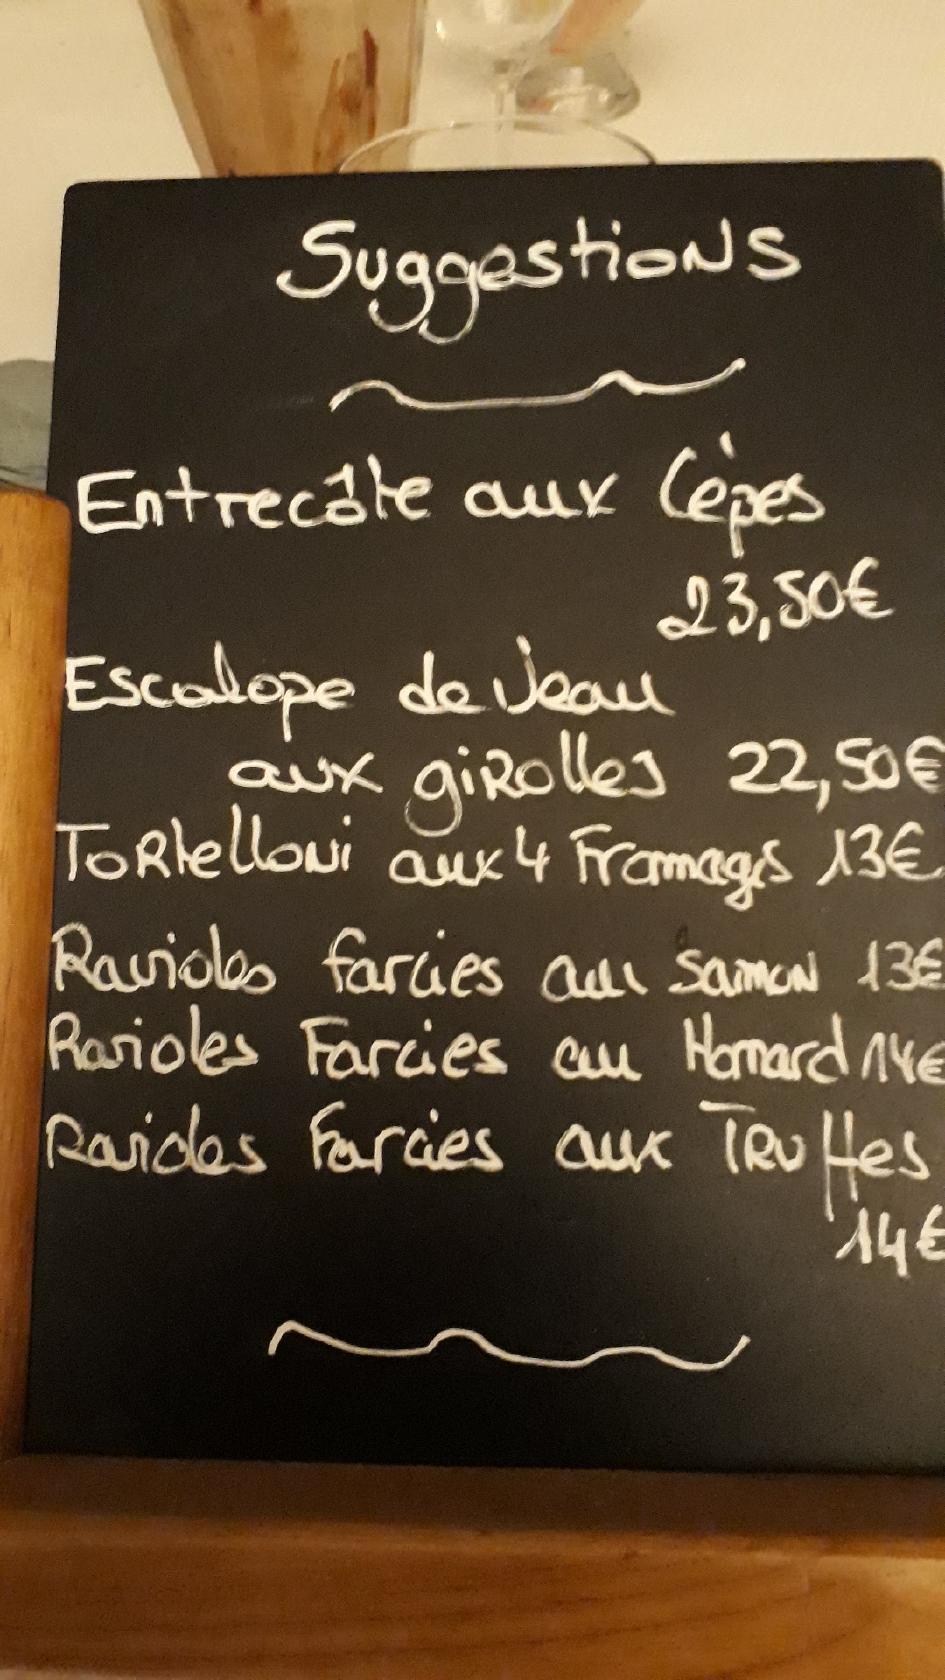 Suggestions
Entrecôte aux Cèpes
23,50€
Escalope de Veau
aux girolles 22,50€
Tortelloni aux 4 Fromages 13€
Ravioles farcies au Samon 13€
Ravioles Farcies au Homard 14€
Ravioles Farcies aux Truffes
14€